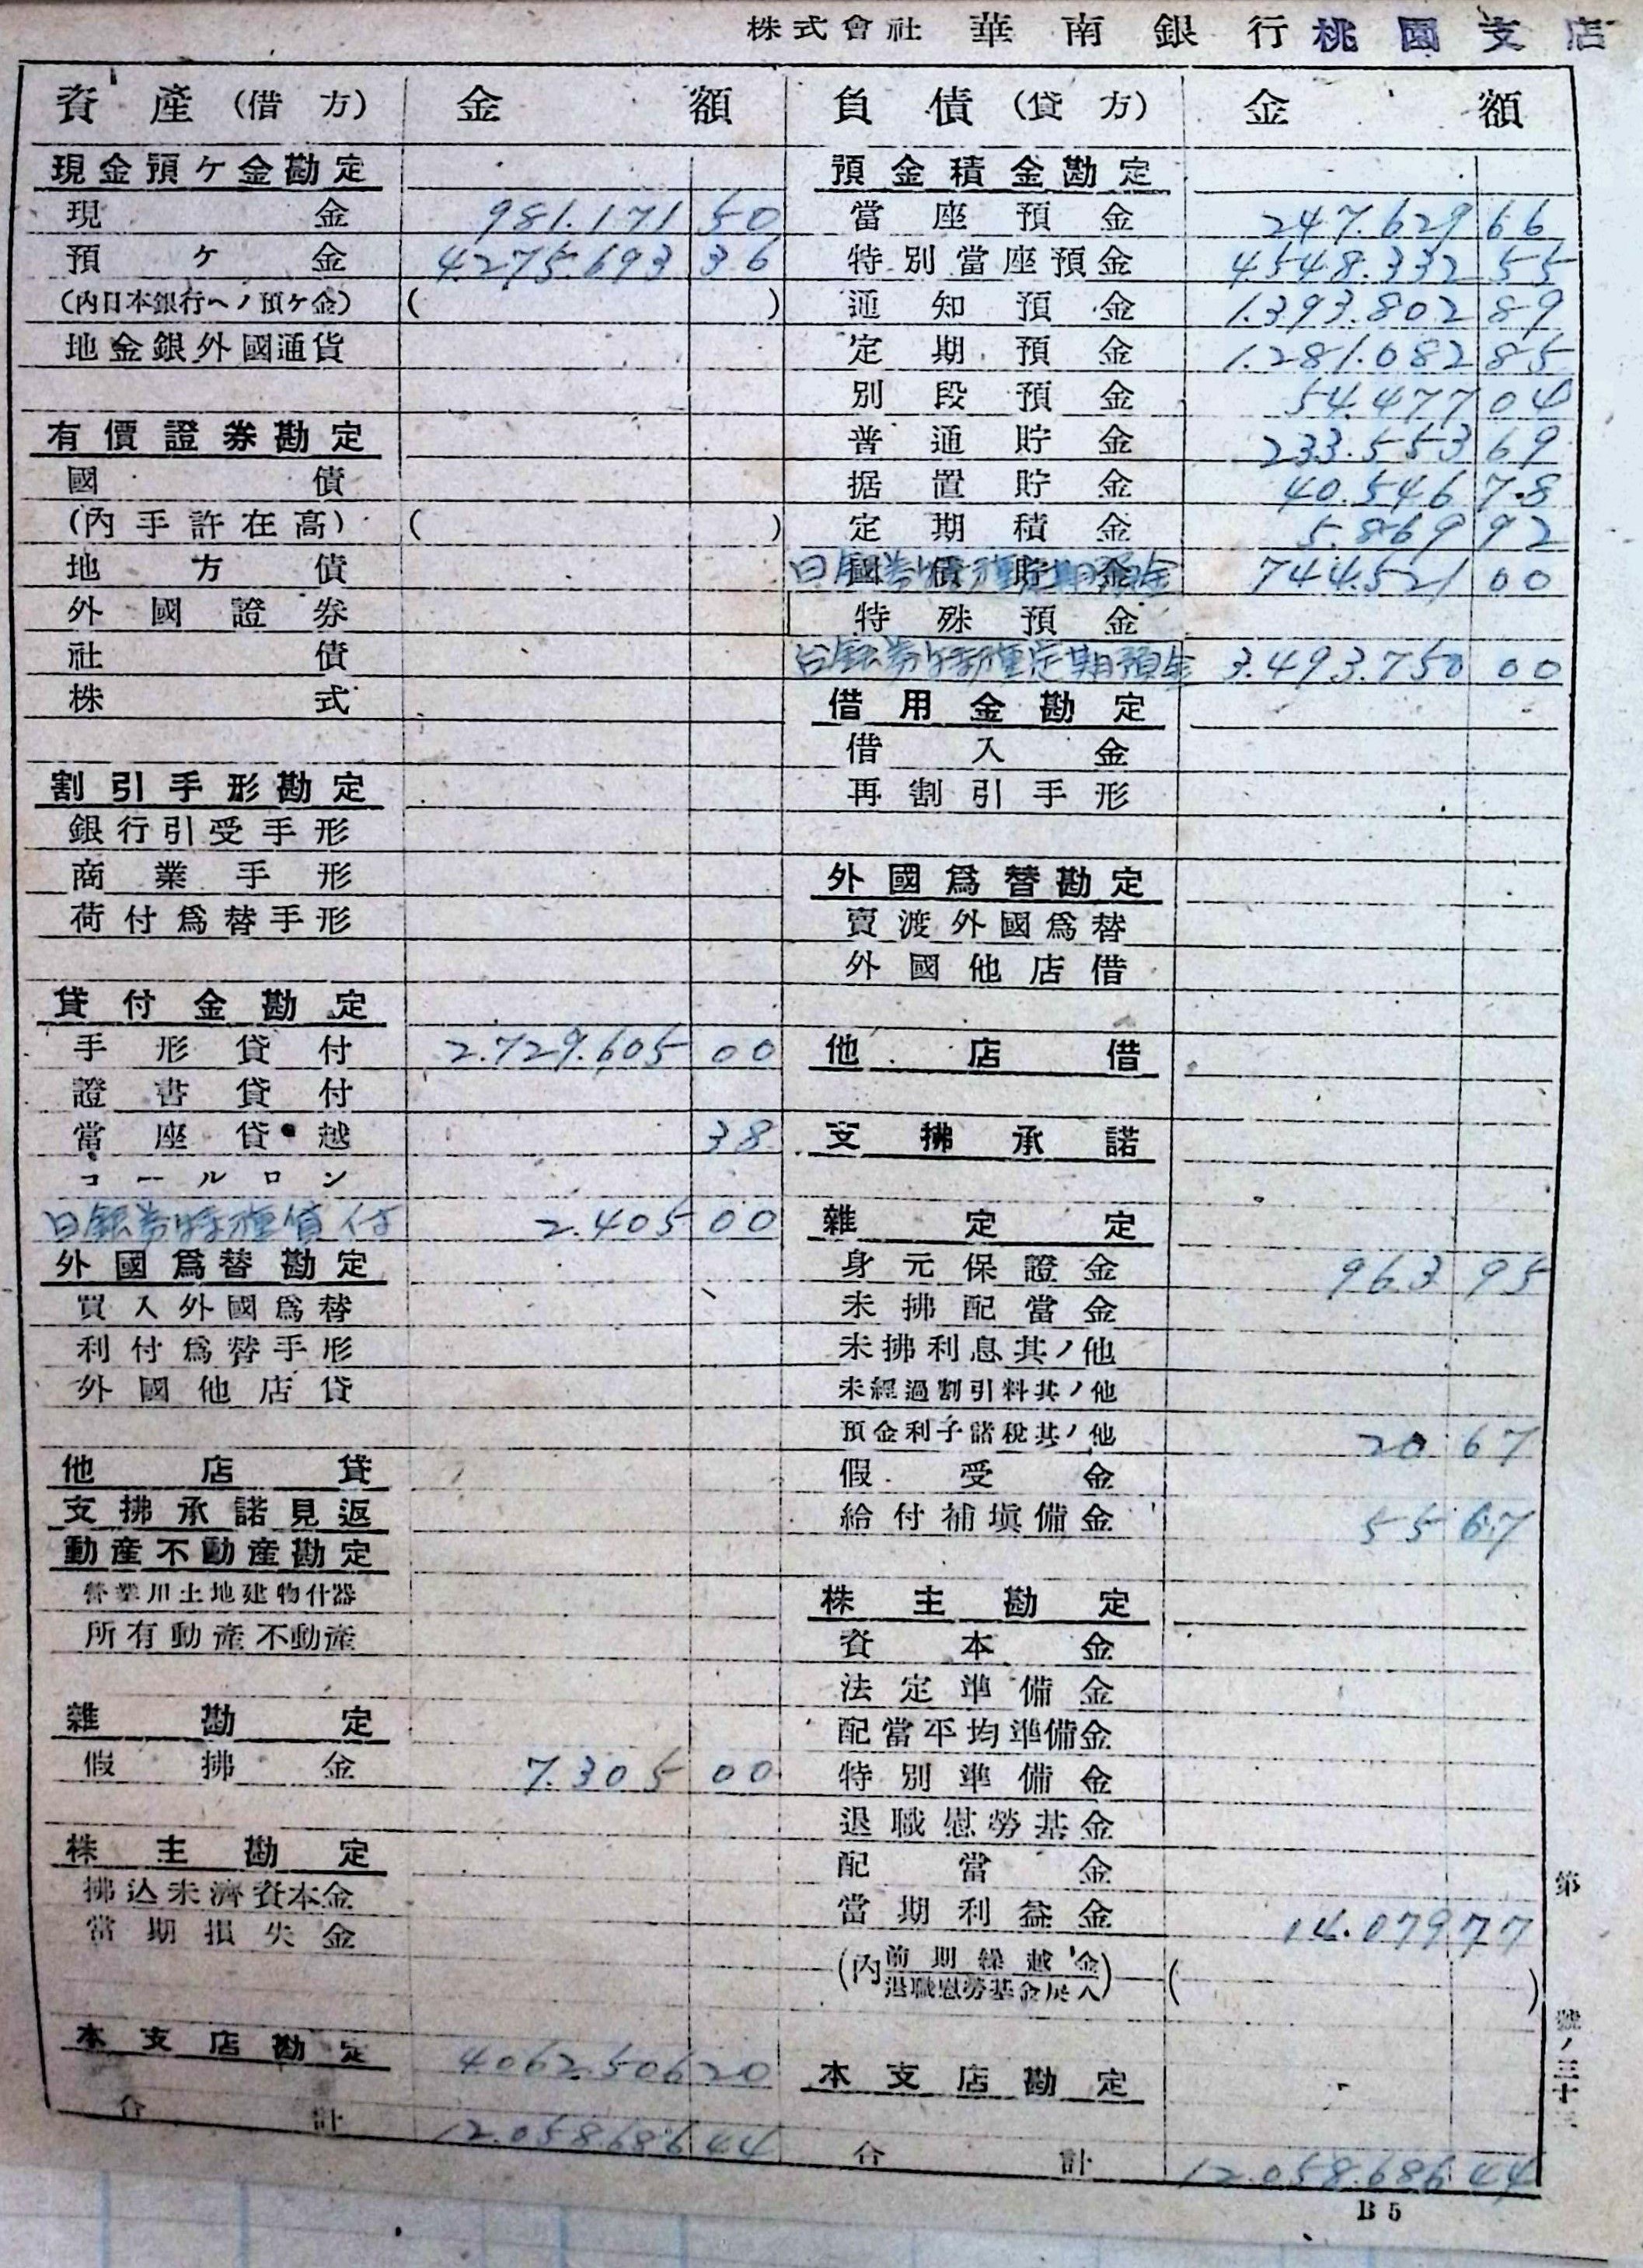 株式會社 華南銀行 桃園支店
資產(借方) 金額
現金預ケ金勘定
現金 981.171 50
預ケ金 4.275.693 36
(內日本銀行ヘノ預ケ金) ( )
地金銀外國通貨
有價證券勘定
國債
(內手許在高) ( )
地方債
外國證券
社債
株式
割引手形勘定
銀行引受手形
商業手形
荷付爲替手形
貸付金勘定
手形貸付 2.729.605 00
證書貸付
當座貸越 38
コールロン
日銀券特種貸付 2.405 00
外國爲替勘定
買入外國爲替
利付爲替手形
外國他店貸
他店貸
支拂承諾見返
動產不動產勘定
營業用土地建物什器
所有動產不動產
雜勘定
假拂金 7.305 00
株主勘定
拂込未濟資本金
當期損失金
本支店勘定 4.062.506 20
合計 12.058.686 44
負債(貸方) 金額
預金積金勘定
當座預金 247.629 66
特別當座預金 4.548.332 55
通知預金 1.393.802 89
定期預金 1.281.082 85
別段預金 54.477 04
普通貯金 233.553 69
据置貯金 40.546 78
定期積金 5.869 92
國債貯金 日銀券特種定期預金 744.521 00
特殊預金
台銀券特種定期預金 3.493.750 00
借用金勘定
借入金
再割引手形
外國爲替勘定
賣渡外國爲替
外國他店借
他店借
支拂承諾
雜定定
身元保證金 963 95
未拂配當金
未拂利息其ノ他
未經過割引料其ノ他
預金利子諸稅其ノ他 20 67
假受金
給付補塡備金 55 67
株主勘定
資本金
法定準備金
配當平均準備金
特別準備金
退職慰勞基金
配當金
當期利益金 14.079 77
(內前期繰越金 退職慰勞基金戾入) ( )
本支店勘定
合計 12.058.686 44
第 號ノ三十三
B5